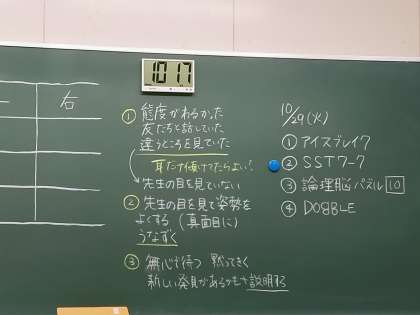 101.7
右
① 態度がわるかった
友だちと話していた
違うところを見ていた
耳だけ傾けてたらよい!
先生の目を見ていない
② 先生の目を見て姿勢を
よくする (真面目に)
うなずく
③ 無心で待つ 黙ってきく
新しい発見があるかもと説明する
10/29(火)
① アイスブレイク
② SSTワーク
③ 論理脳パズル 10
④ DOBBLE